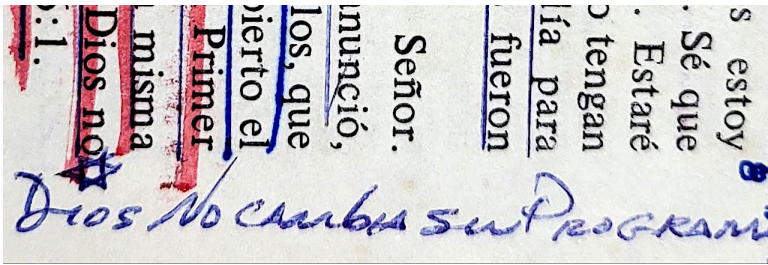 s estoy
. Sé que
. Estaré
o tengan
ía para
fueron
Señor.
nunció,
los, que
bierto el
Primer
misma
Dios no
:1.
Dios No cambia su Program